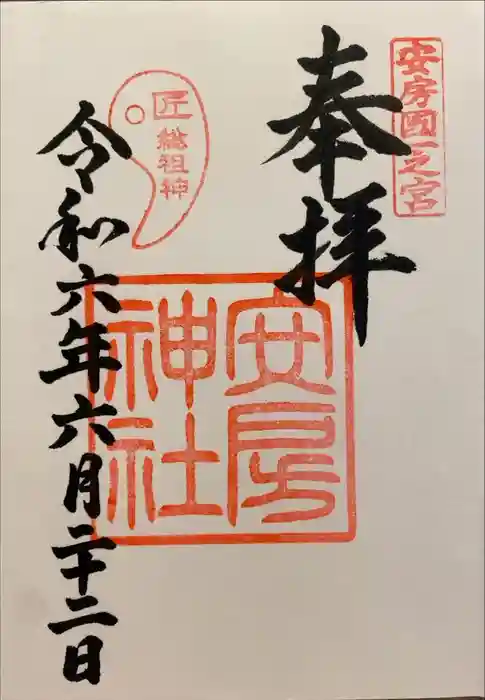 安房國一之宮
奉拝
安房
神社
匠
総祖神
令和六年六月二十二日